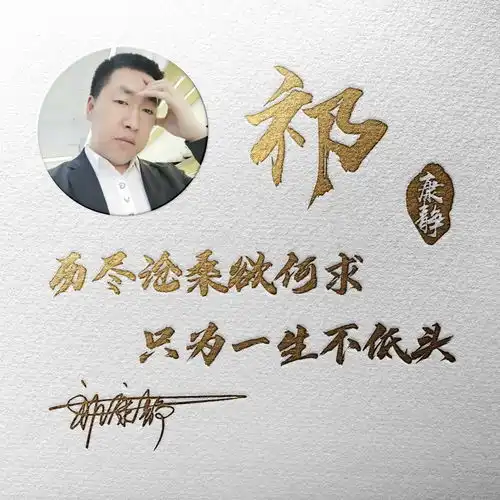 祁
康静
历尽沧桑欲何求
只为一生不低头
祁康静